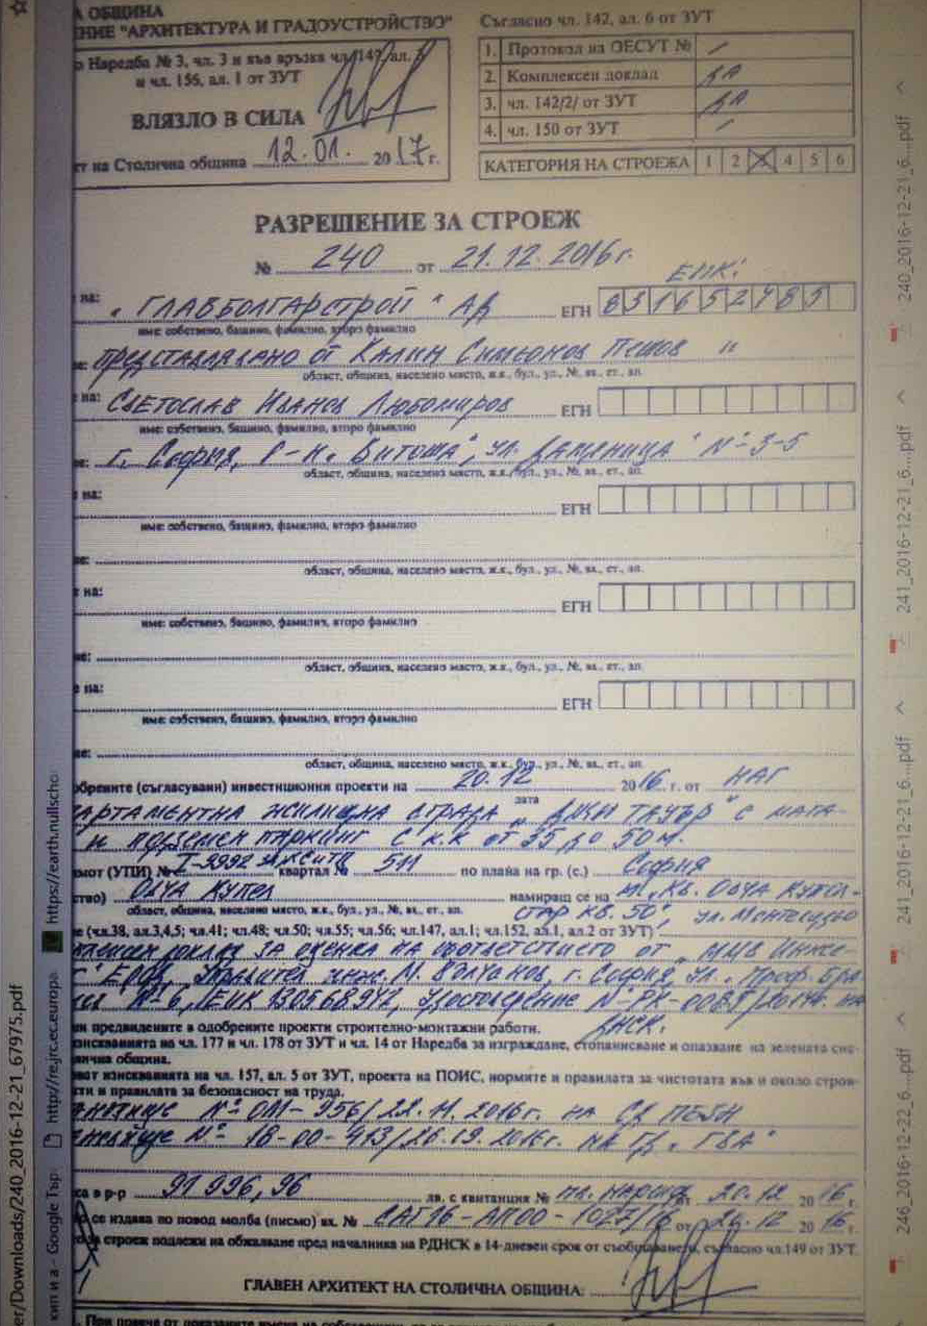 А ОБЩИНА
НИЕ "АРХИТЕКТУРА И ГРАДОУСТРОЙСТВО"
Наредба № 3, чл. 3 и във връзка чл. 149, ал.
и чл. 156, ал. 1 от ЗУТ
ВЛЯЗЛО В СИЛА
на Столична община 12.01. 2017 г.
Съгласно чл. 142, ал. 6 от ЗУТ
1. Протокол на ОЕСУТ №
2. Комплексен доклад ДА
3. чл. 142/2/ от ЗУТ ДА
4. чл. 150 от ЗУТ
КАТЕГОРИЯ НА СТРОЕЖА 1 2 3 4 5 6
РАЗРЕШЕНИЕ ЗА СТРОЕЖ
№ 240 от 21.12.2016г.
ЕИК:
на: "ГЛАВБОЛГАРСТРОЙ" АД ЕГН 831652485
име: собствено, бащино, фамилно, второ фамилно
представлявано от Калин Симеонов Пешов и
област, община, населено място, ж.к., бул., ул., №, вх., ет., ап.
на: Светослав Иванов Любомиров ЕГН
име: собствено, бащино, фамилно, второ фамилно
г. София, р-н "Витоша", ул. "Даменица" № 3-5
област, община, населено място, ж.к., бул., ул., №, вх., ет., ап.
на: ЕГН
име: собствено, бащино, фамилно, второ фамилно
област, община, населено място, ж.к., бул., ул., №, вх., ет., ап.
на: ЕГН
име: собствено, бащино, фамилно, второ фамилно
област, община, населено място, ж.к., бул., ул., №, вх., ет., ап.
на: ЕГН
име: собствено, бащино, фамилно, второ фамилно
област, община, населено място, ж.к., бул., ул., №, вх., ет., ап.
обрените (съгласувани) инвестиционни проекти на 20.12 2016 г. от НАГ
дата
АРТАМЕНТНА ЖИЛИЩНА СГРАДА ТАУЪР" с мага-
и подземен паркинг с к.к от 35 до 50м.
мот (УПИ) № I-2992 квартал № 511 по плана на гр. (с.) София
ство) Овча купел намиращ се на м. "Кв. Овча купел-
област, община, населено място, ж.к., бул., ул., №, вх., ет., ап. стар кв. 50", ул. Монтевидео
е (чл.38, ал.3,4,5; чл.41; чл.48; чл.50; чл.55; чл.56; чл.147, ал.1; чл.152, ал.1, ал.2 от ЗУТ)
доклад за оценка на съответствието от
управител инж. г. София, ул. "Проф.
№ 6, ЕИК 130568972, Удостоверение на
ДНСК.
н предвидените в одобрените проекти строително-монтажни работи.
изискванията на чл. 177 и чл. 178 от ЗУТ и чл. 14 от Наредба за изграждане, стопанисване и опазване на зелената сис-
лична община.
ват изискванията на чл. 157, ал. 5 от ЗУТ, проекта на ПОИС, нормите и правилата за чистотата във и около строе-
сти и правилата за безопасност на труда.
№ ОМ-956/22.11.2016г. на
№ 18-00-413/26.09.2016г. на
са в р-р 91 996,96 лв. с квитанция № пл. нареж. от 20.12 2016 г.
се издава по повод молба (писмо) вх. № САГ16-АП00-1027/ от 20.12 2016 г.
за строеж подлежи на обжалване пред началника на РДНСК в 14-дневен срок от съобщаването, съгласно чл.149 от ЗУТ.
ГЛАВЕН АРХИТЕКТ НА СТОЛИЧНА ОБЩИНА:
er/Downloads/240_2016-12-21_67975.pdf
а - Google Тър
http://re.jrc.ec.europa
https://earth.nullscho
240_2016-12-21_6....pdf
241_2016-12-21_6....pdf
241_2016-12-21_6....pdf
246_2016-12-22_6....pdf